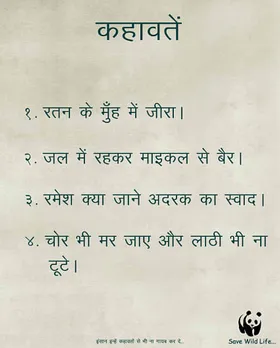 कहावतें
१. रतन के मुँह में जीरा।
२. जल में रहकर माइकल से बैर।
३. रमेश क्या जाने अदरक का स्वाद।
४. चोर भी मर जाए और लाठी भी ना
टूटे।
इंसान इन्हें कहावतों से भी ना गायब कर दे...
Save Wild Life...